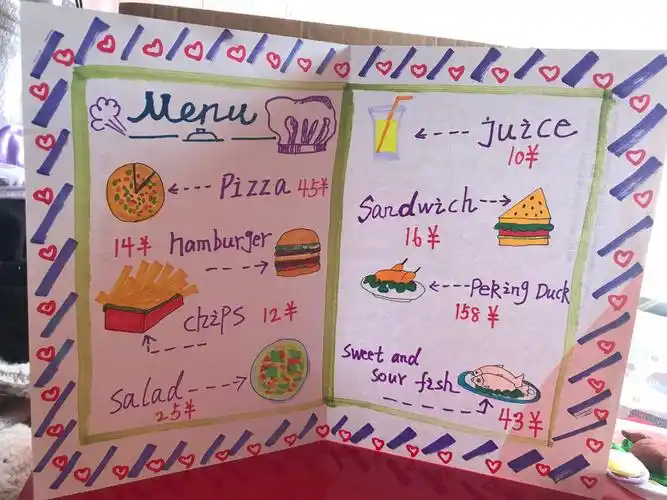 Menu
Pizza 45¥
14¥ hamburger
chips 12¥
salad
25¥
juice
10¥
Sandwich
16¥
Peking Duck
158¥
sweet and
sour fish
43¥